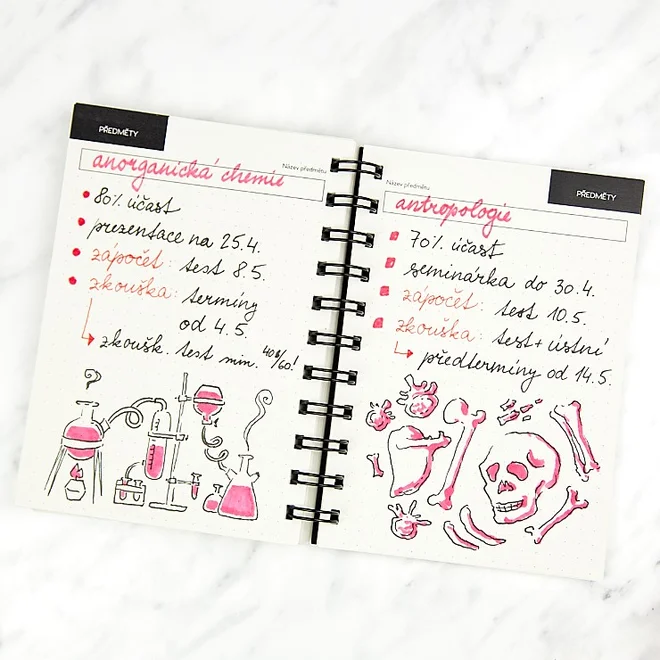 PŘEDMĚTY
Název předmětu
anorganická chemie
80% účast
prezentace na 25.4.
zápočet: test 8.5.
zkouška: termíny
od 4.5.
zkoušk. test min. 40b/60!
PŘEDMĚTY
Název předmětu
antropologie
70% účast
seminárka do 30.4.
zápočet: test 10.5.
zkouška: test+ústní
předtermíny od 14.5.